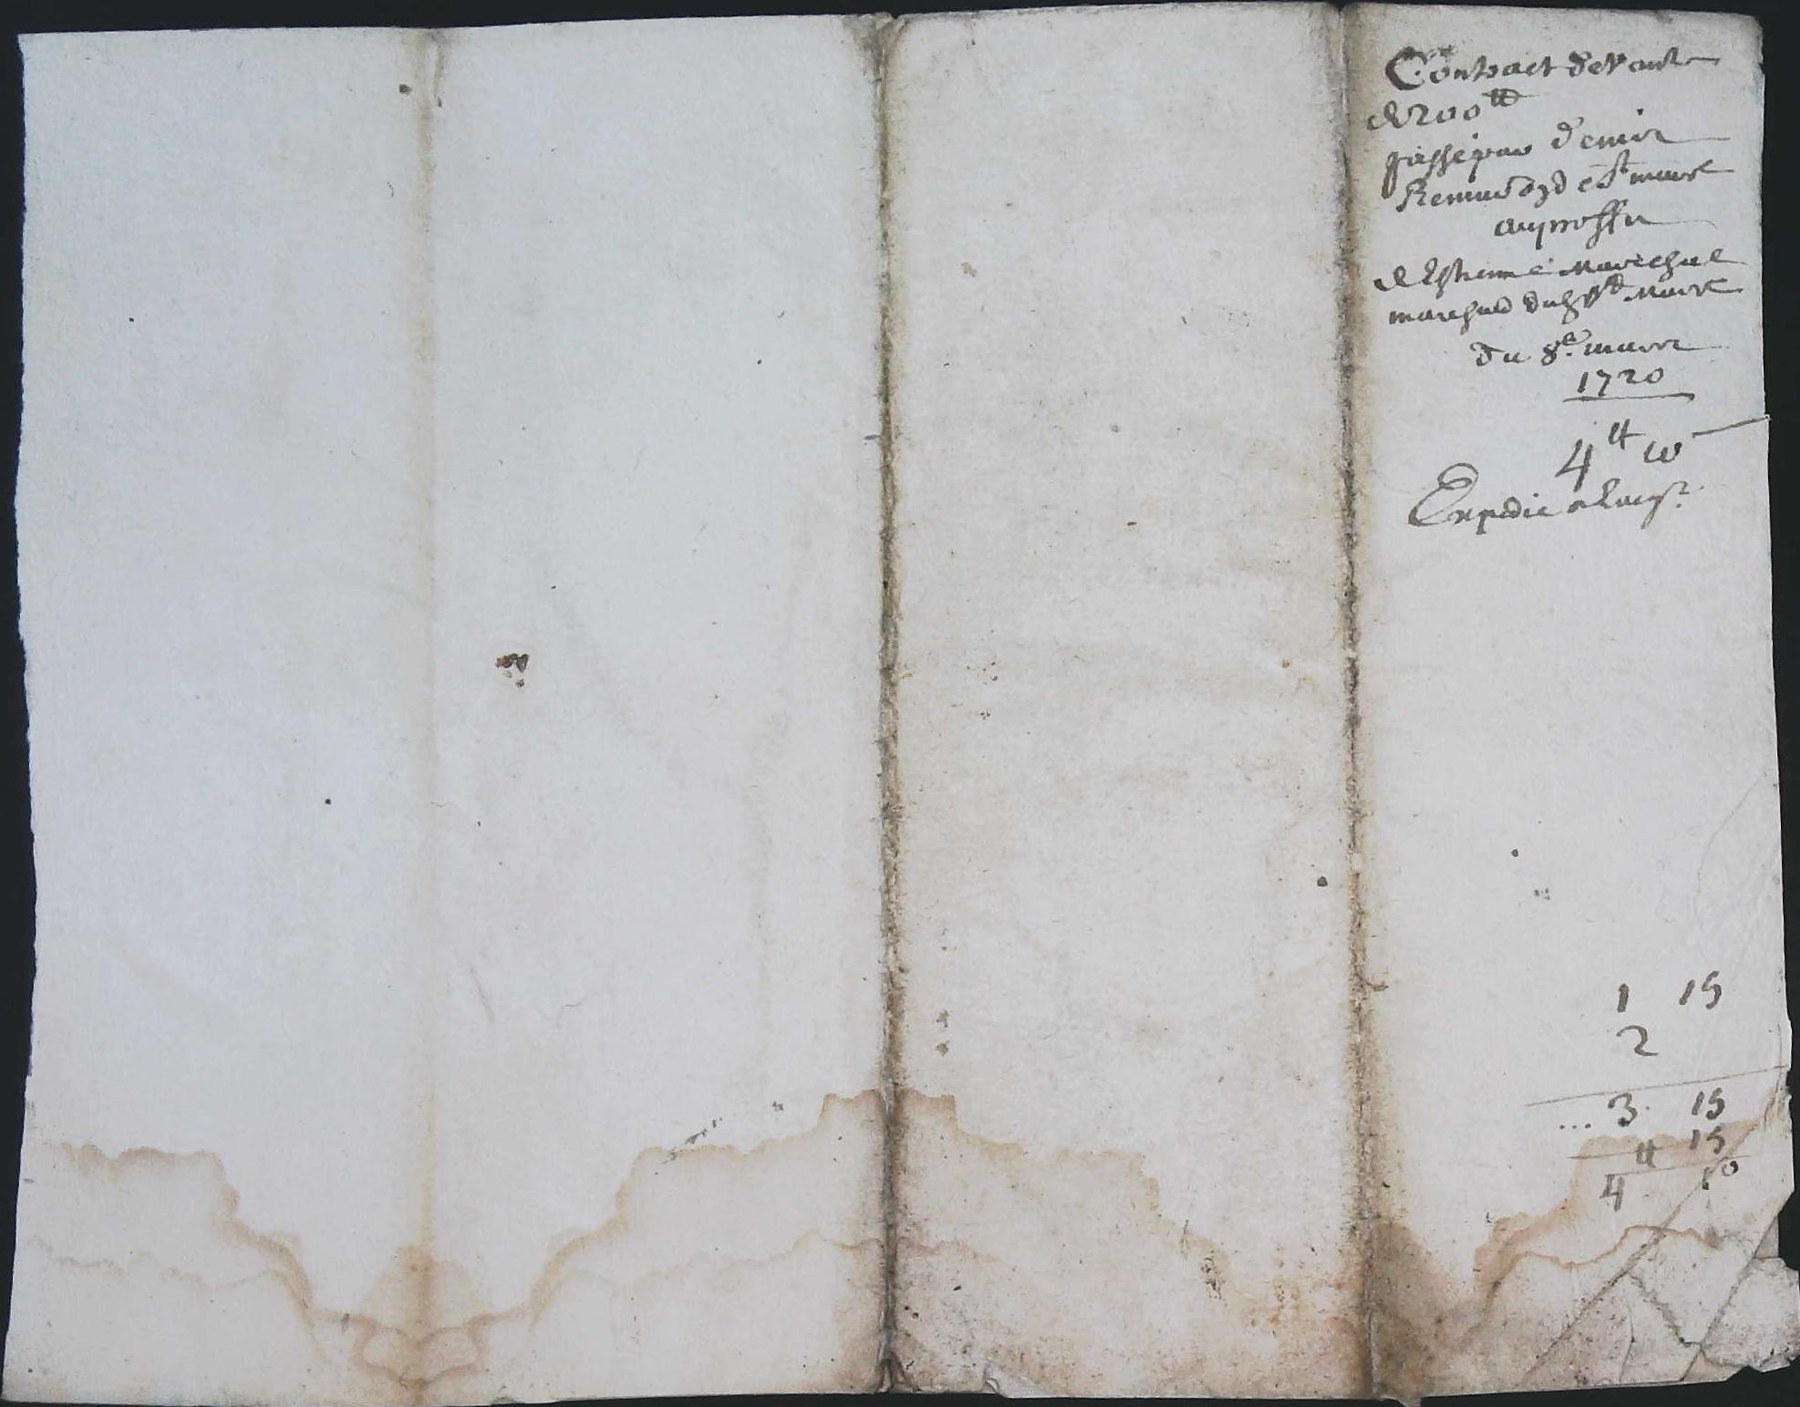 Contract de Vante
de 200 ₶
passé par Denis
Renau de St maur
au proffit
d'Estienne Marechal
marchand du Maur
du 8e. marre
1720
4 ₶ 10
Expedie
1 15
2
... 3. 15
15
4 10